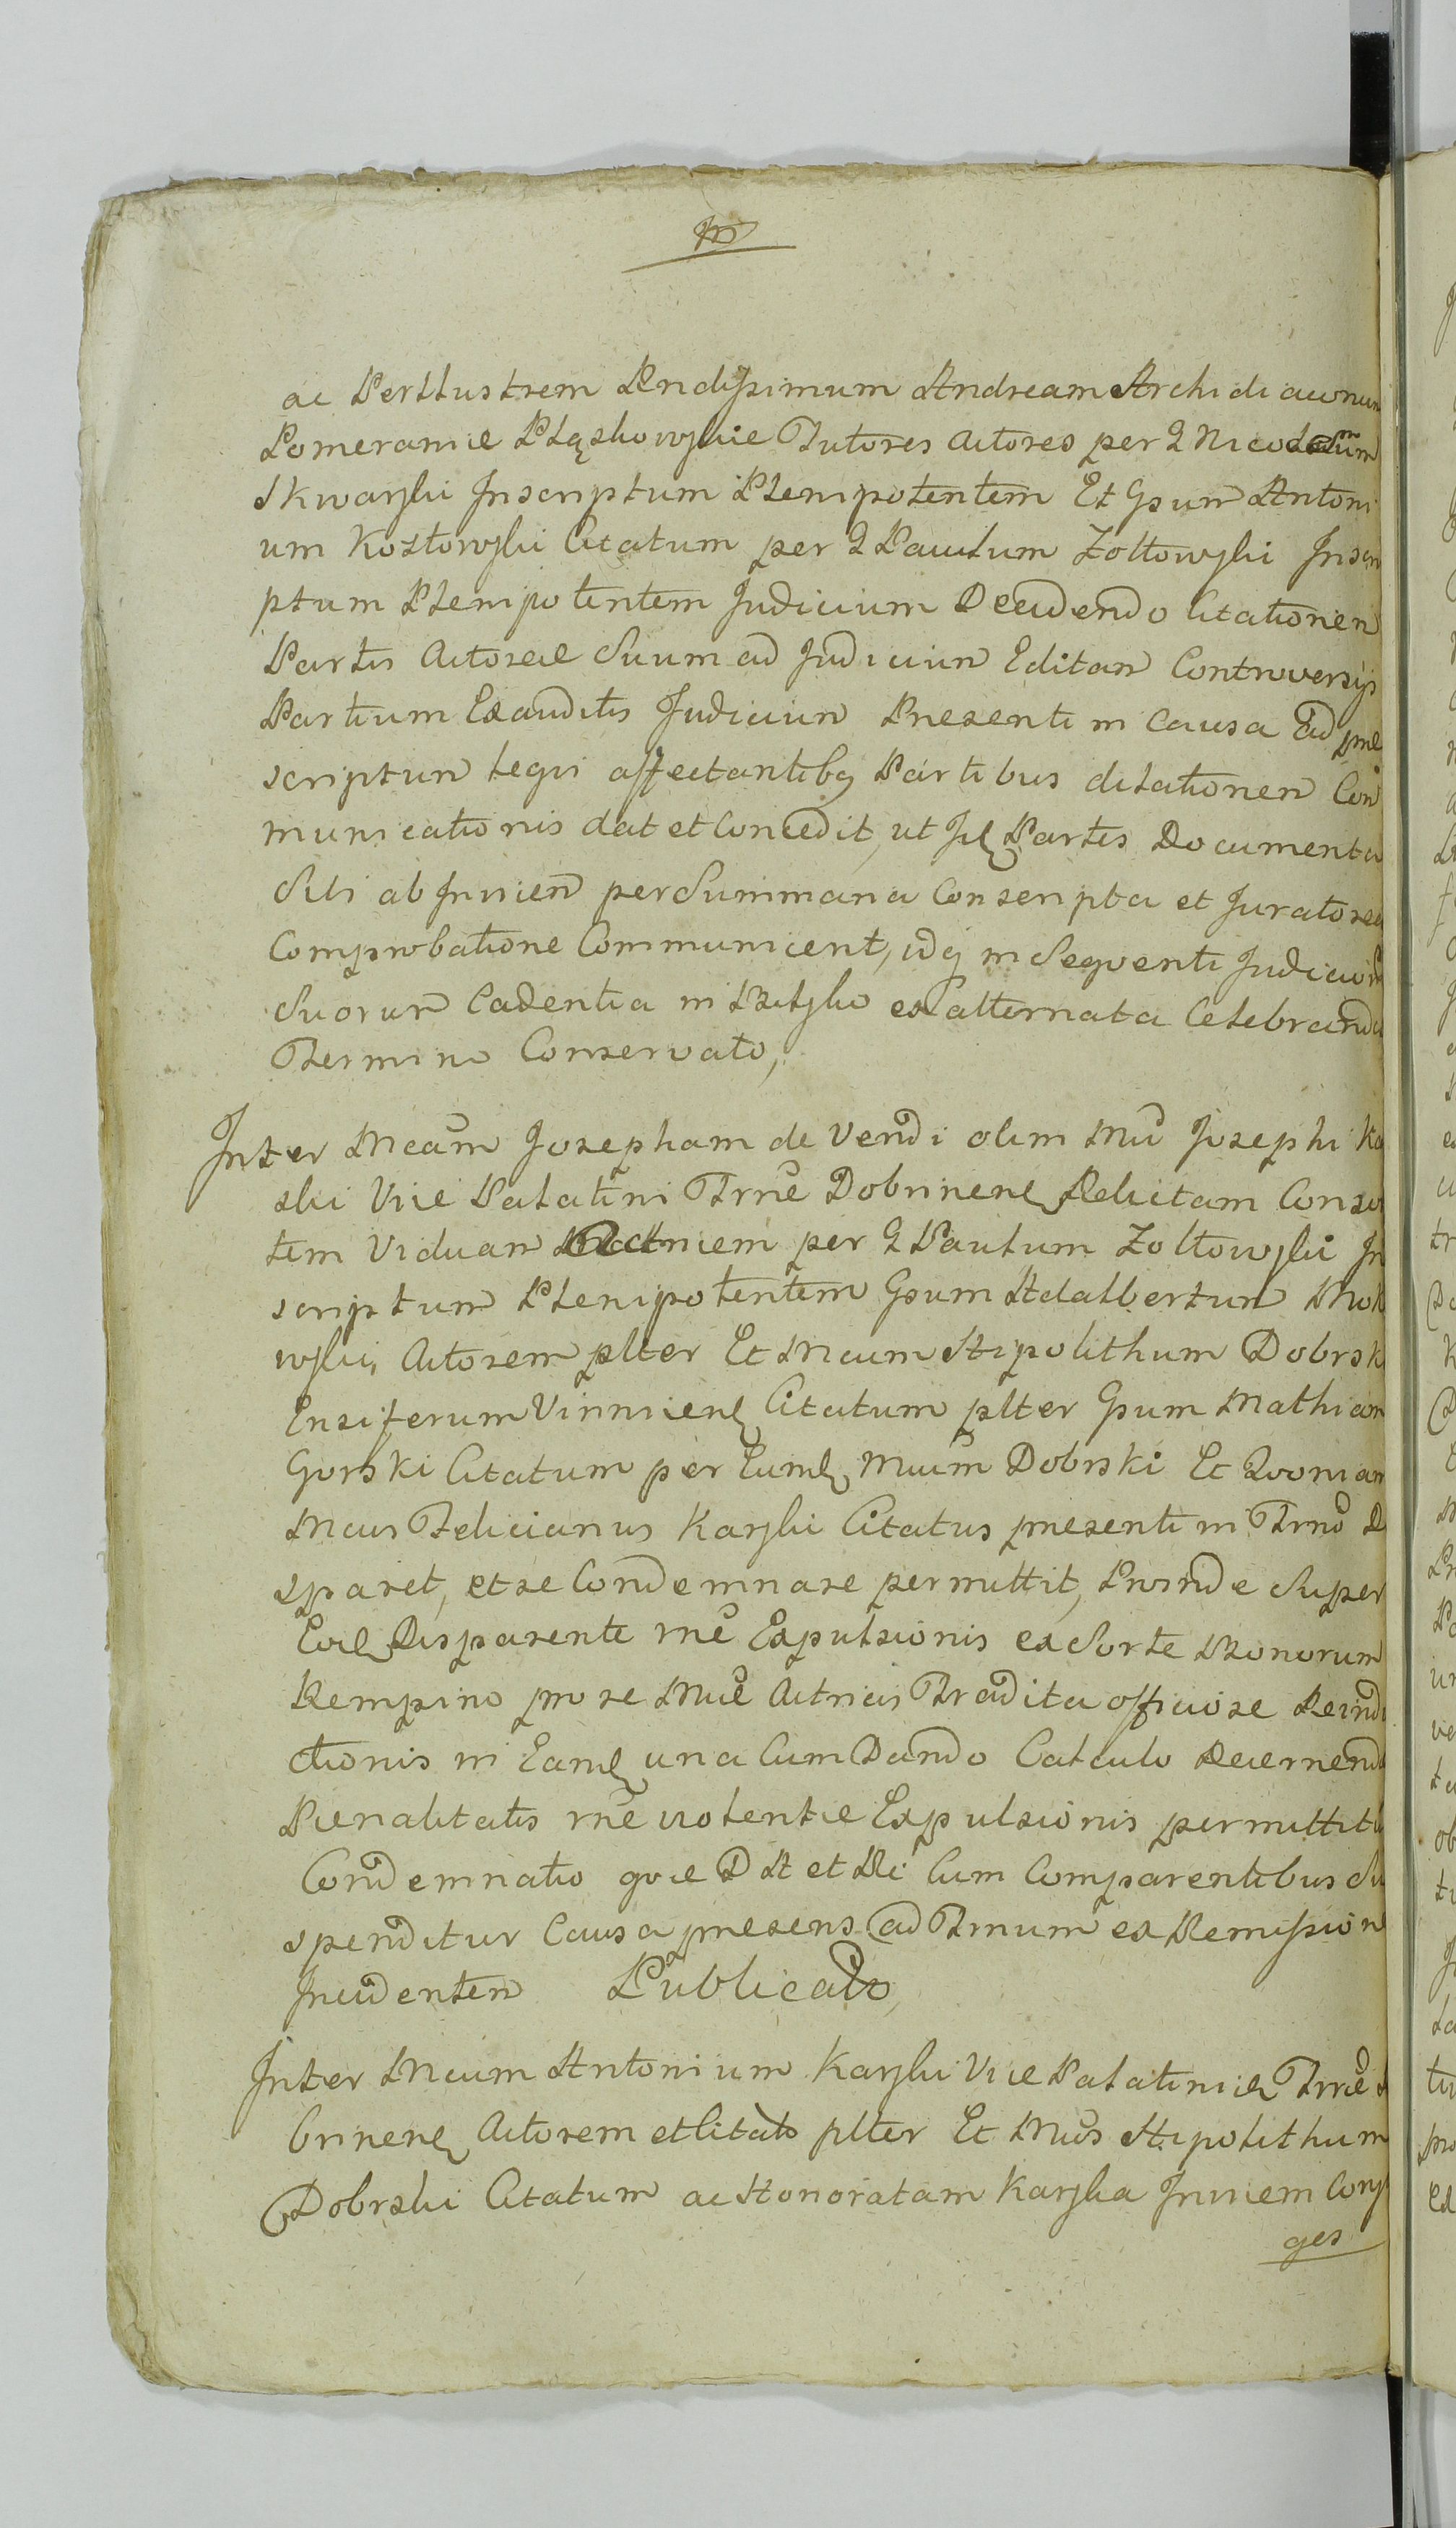 ac Perillustrem Rndissimum Andream Archidiaconum
Pomeraniæ Pląskowskie Tutores Actores per G Nicodemum
Skwarski Inscriptum Plenipotentem Et Gsum Antoni
um Kozłowski Citatum per G Paulum Zołtowski Inscri
ptum Plenipotentem Judicium Decidendo Citationem
Partis Actoreæ Suum ad Judicium Editam Controversijs
Partium Exauditis Judicium Presenti in Causa ad præ
scriptum legis affectantibq Partibus dilationem Com
municationis dat et Concedit, ut Partes Documenta
Sibi ab Invicem per Summaria Conscripta et Juratorea
Comprobatione Communicent, idq in Seqventi Judiciorum
Suorum Cadentia in ex alternata Celebranda
Termino Conservato,
Inter Mcam Josepham de Vendi olim Mci Josephi Ka
ski Vice Palatini Trræ Dobrinens Relictam Conzor
tem Viduam Actricem per G Paulum Zołtowski In
scriptum Plenipotentem Gsum Adalbertum
wski, Actorem plter Et Mcum Hipolithum Dobrsk
Ensiferum Vinnicens Citatum plter Gsum Mathiam
Gorski Citatum per Eund Mcum Dobrski Et Qvoniam
Mcus Felicianus Karski Citatus presenti in Trno Di
sparet, et se Condemnare permittit, Proinde Super
Eod Disparente rne Expulsionis ex Sorte Bonorum
Kempino pro se Mcæ Actrici Tradita officiose Reindu
ctionis in Eand una Cum Dando Calculo Decernend
Pœnalitatis rne violentæ Expulsionis permittitu
Condemnatio qvæ D A et Rei Cum Comparentibus Su
spenditur Causa presens ad Trnum ex Remission
Incidentem Publicato
Inter Mcum Antonium Karski Vice Palatinid Trræ
brinens Actorem et Citato plter Et Mcos Hipolithum
Dobrski Citatum ac Honoratam Karska Invicem Conj
ges